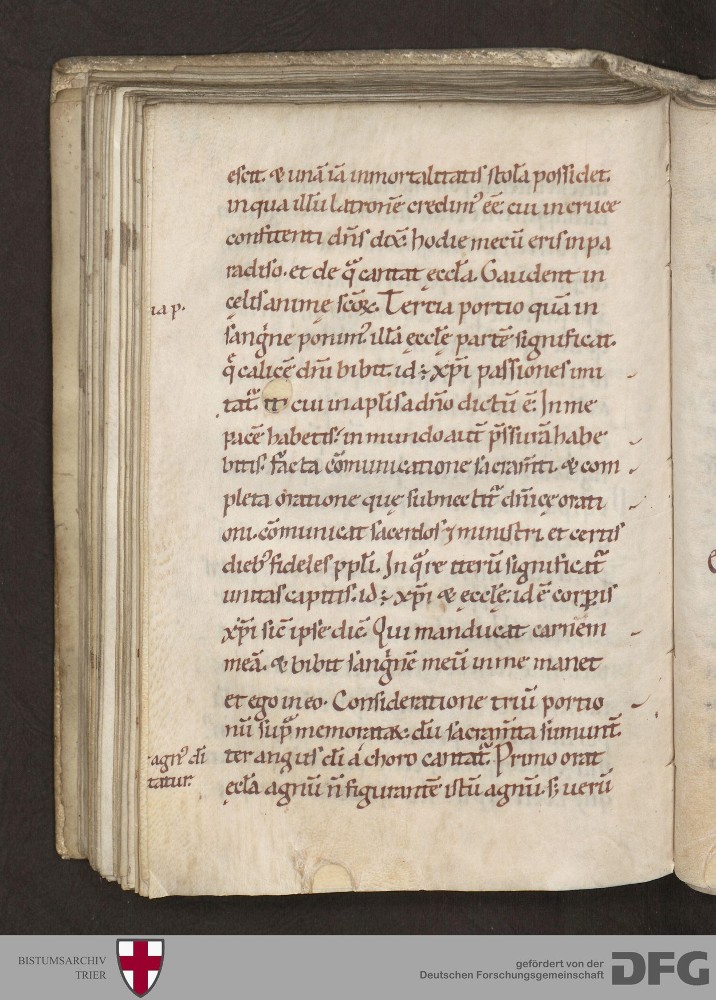 escit. & unā iā inmortalitatis stola possidet.
in qua illū latronē credim᾽ eē. cui in cruce
confitenti dn̄s dix̄. hodie mecū eris in pa
radiso. et de qͣ cantat eccl̄a. Gaudent in
cęlis animę sc̄oꝝ. Tertia portio quā in
sangͥne ponim᾽ illā ęccl̄ę partē significat.
qͣ calicē dn̄i bibit. id ÷ xp̄i passiones imi
tat᷑. cui in apl̄is a dn̄o dictū ē. In me
pacē habetis. in mundo aut̄ p̄ssurā habe
bitis. Facta cōmunicatione sacram̄ti. & com
pleta oratione que subnectit᷑ dn̄icę orati
oni. cōmunicat sacerdos ⁊ ministri. et certis
dieb᾽ fideles ppl̄i. In qͣre iterū significat᷑
unitas capitis. id ÷ xp̄i & ęccl̄ę. id ē corꝑis
xp̄i sic̄ ipse dic̄. Qui manducat carnem
meā. & bibit sangͥnē meū in me manet
et ego in eo. Consideratione triū portio
nū supͣ memorataꝝ. dū sacram̄ta sumunt᷑.
ter angus di a choro cantat᷑. Primo orat
ęccl̄a agnū n̄ figurantē istū agnū. s; uerū
ia p.
agn᾽ di
tatur.
BISTUMSARCHIV
TRIER
gefördert von der
Deutschen Forschungsgemeinschaft
DFG